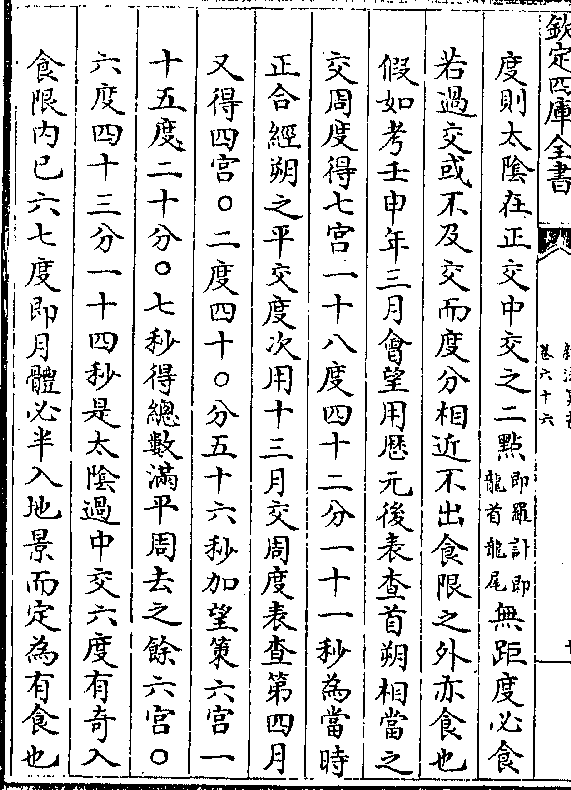 欽定四庫全書
卷六十六
度則太陰在正交中交之二點即羅計即龍首龍尾無距度必食
若過交或不及交而度分相近不出食限之外亦食也
假如考壬申年三月會望用厯元後表查首朔相當之
交周度得七宮一十八度四十二分一十一秒為當時
正合經朔之平交度次用十三月交周度表查第四月
又得四宮〇二度四十〇分五十六秒加望策六宮一
十五度二十分〇七秒得總數滿平周去之餘六宮〇
六度四十三分一十四秒是太陰過中交六度有奇入
食限内已六七度即月體必半入地景而定為有食也